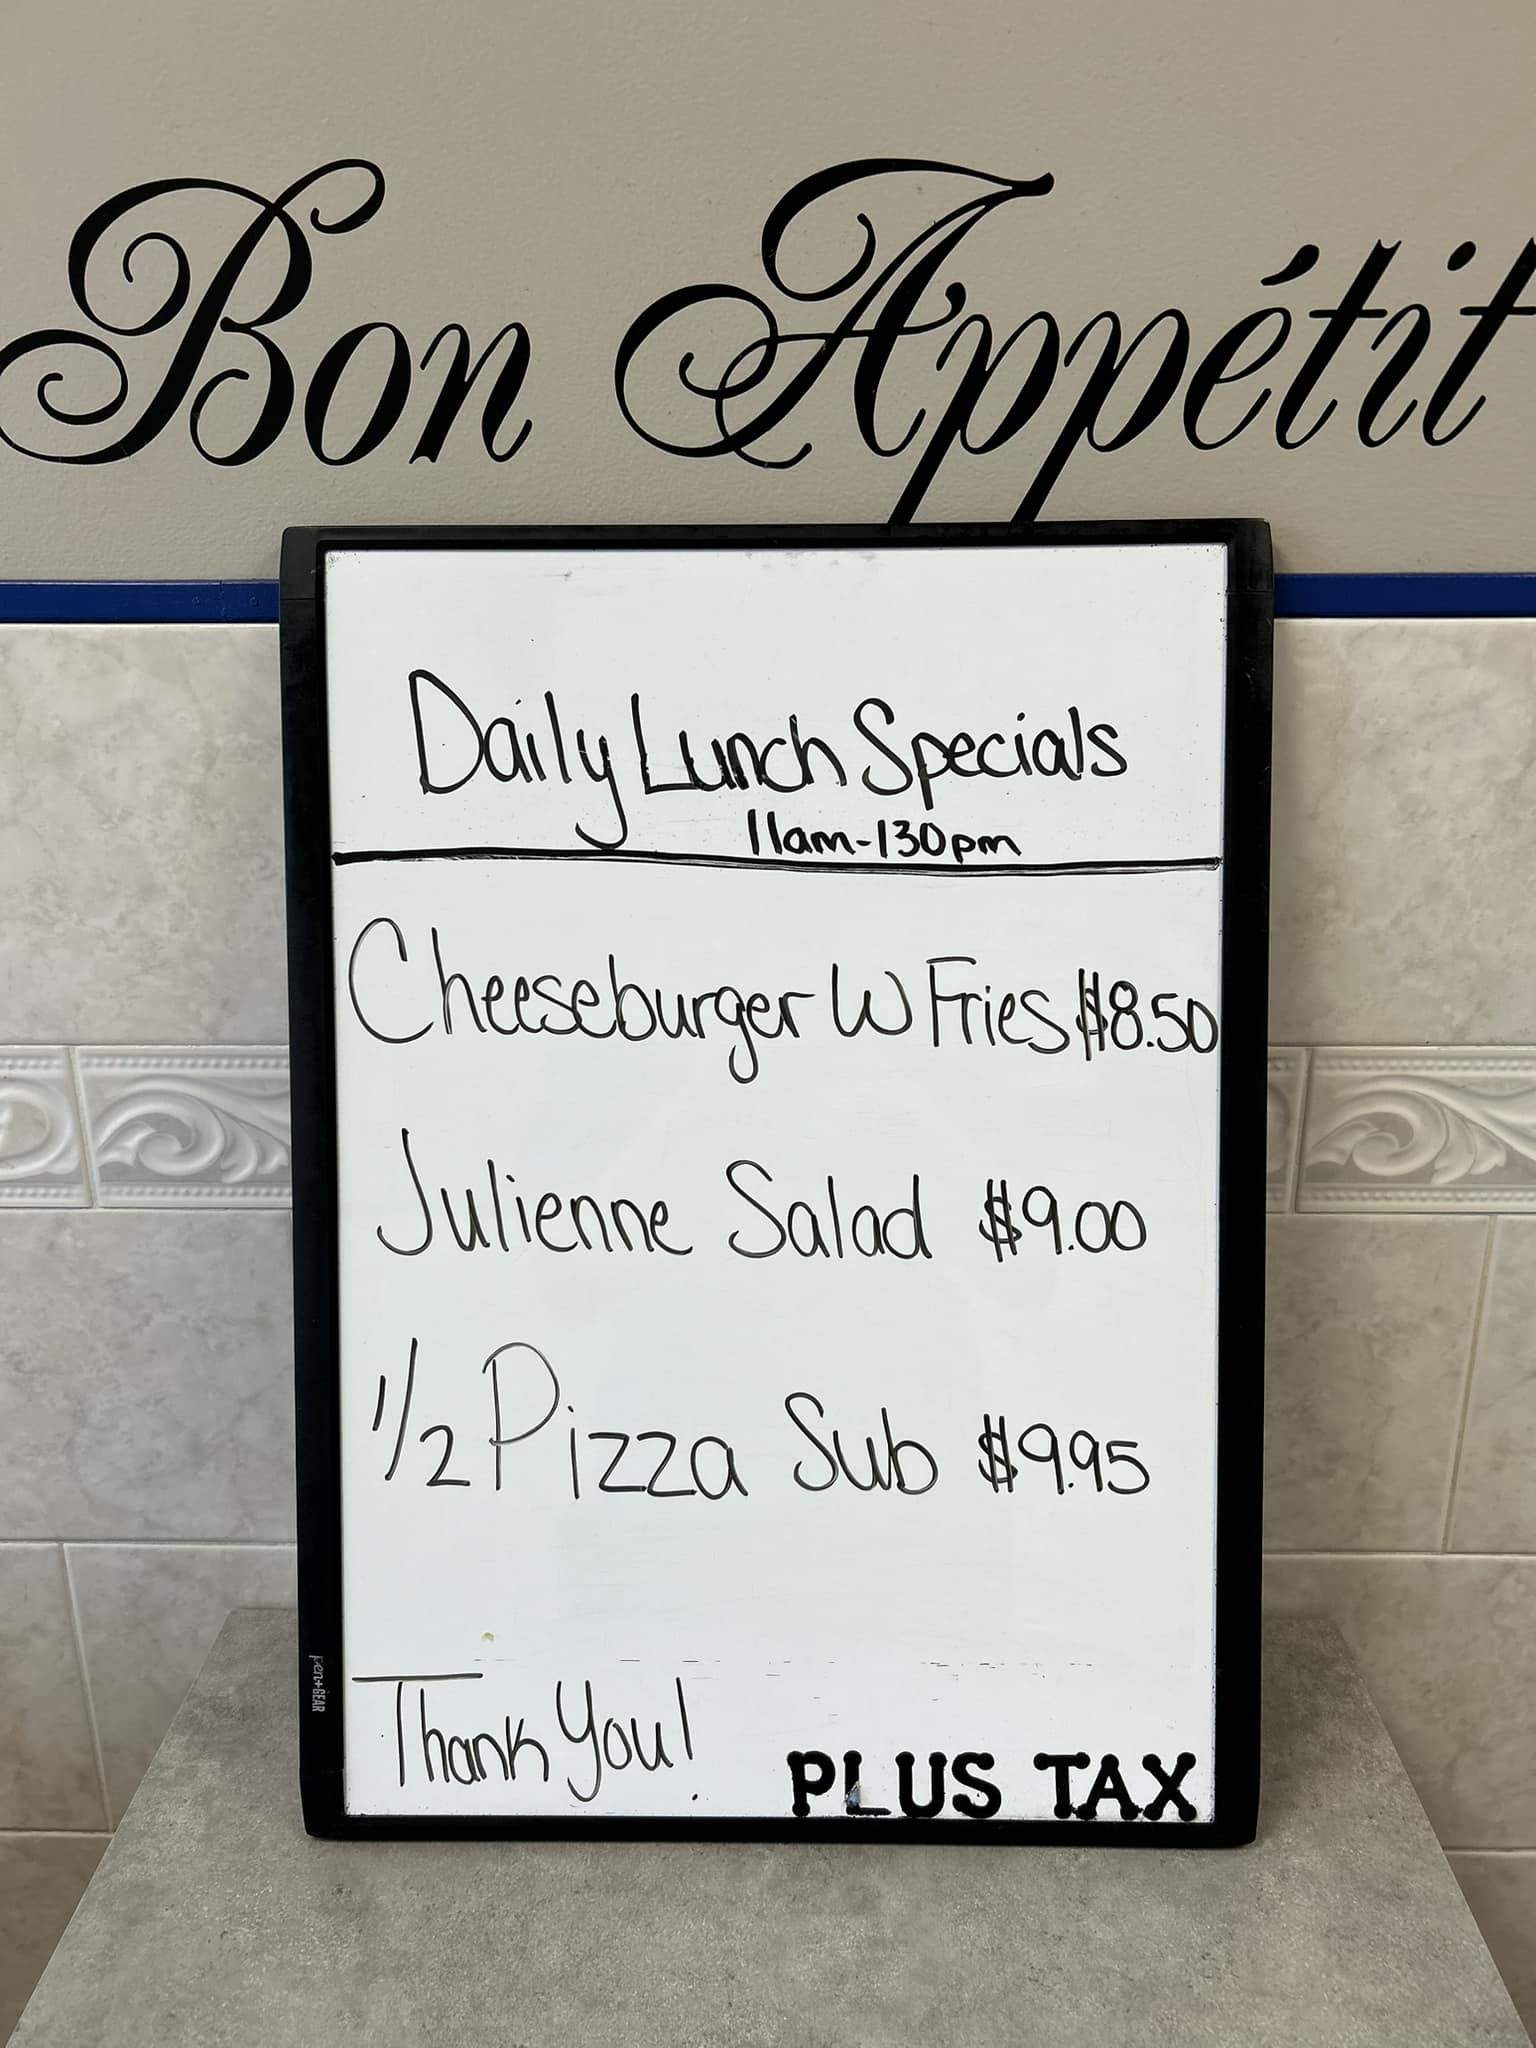 Bon Appétit
Daily Lunch Specials
11am-130pm
Cheeseburger W Fries $8.50
Julienne Salad $9.00
1/2 Pizza Sub $9.95
Thank You!
PLUS TAX
pen+GEAR